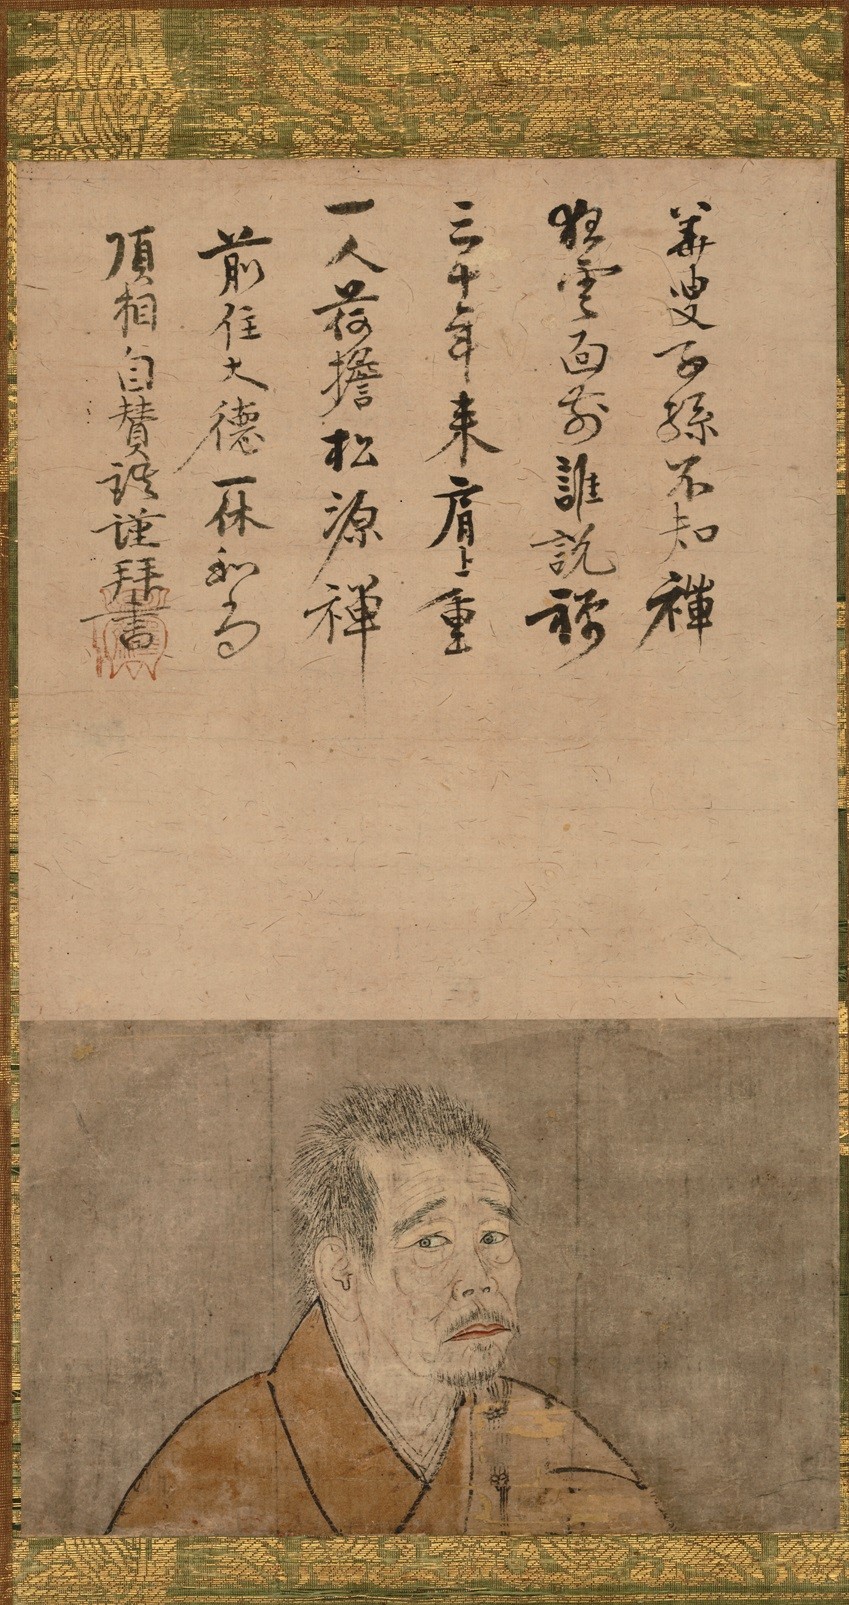 華叟子孫不知禅
狂雲面前誰説禅
三十年来肩上重
一人荷擔松源禅
前住大德一休和尚
頂相自賛謹拜書